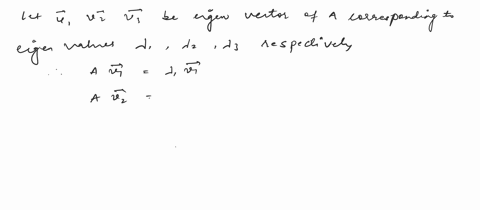 Let v⃗₁ v⃗₂ v⃗₃ be eigen vector of A corresponding to
eigen values λ₁ , λ₂ , λ₃ respectively
∴ A v⃗₁ = λ₁ v⃗₁
A v⃗₂ =